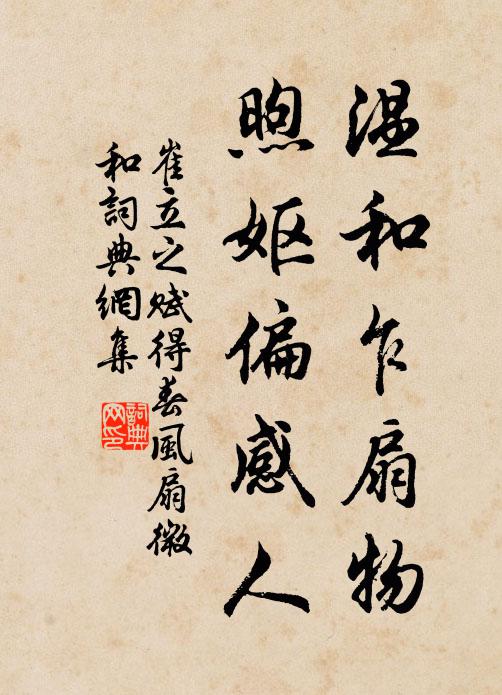 温和乍扇物
煦妪偏感人
崔立之赋得春風扇微
和詞典網集
詞典
网印